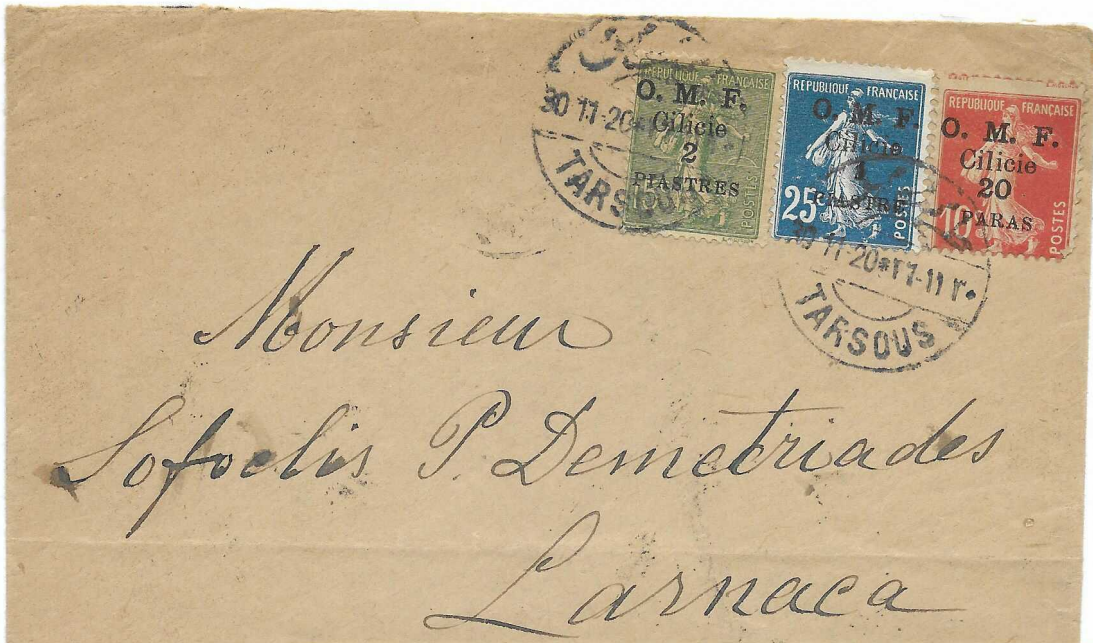 RÉPUBLIQUE FRANÇAISE
O. M. F.
Cilicie
2
PIASTRES
POSTES
RÉPUBLIQUE FRANÇAISE
O. M. F.
Cilicie
1
PIASTRE
25
POSTES
RÉPUBLIQUE FRANÇAISE
O. M. F.
Cilicie
20
PARAS
10
POSTES
30 11-20
TARSOUS
30 11-20*٣٦-١١ ٣٠
TARSOUS
Monsieur
Sofoclis P. Demetriades
Larnaca